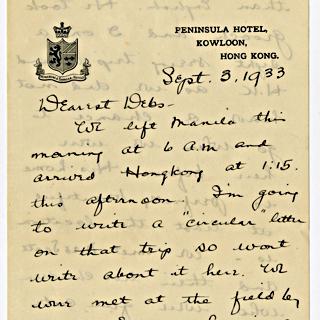 PENINSULA HOTEL,
KOWLOON,
HONG KONG.
Sept. 3, 1933
Dearest Debs-
We left Manila this
morning at 6 A.M and
arrived Hongkong at 1:15.
this afternoon. I'm going
to write a "circular" letter
on that trip so wont
write about it here. We
were met at the field by